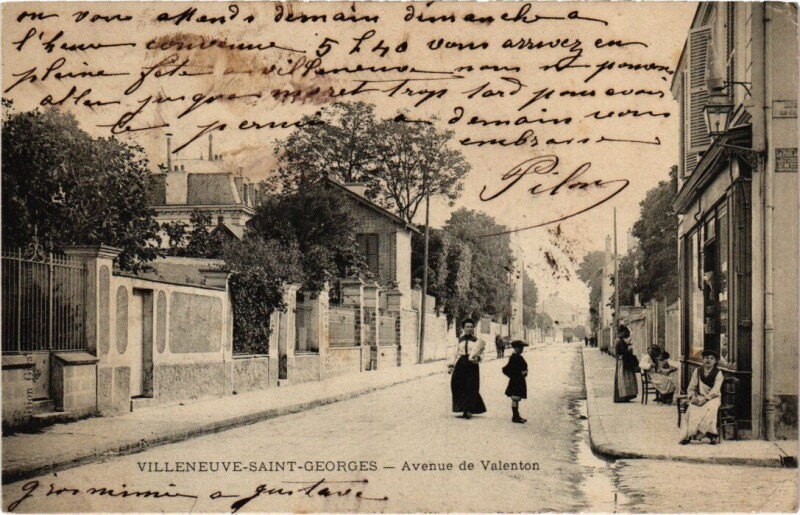 on vous attends demain dimanche a
l'heure convenue 5 h 40 vous arrivez en
pleine fete a villeneuve nous ne pouvons
aller jusqua moret trop tard pour avoir
le permis a demain vous
embrasse
Pilon
VILLENEUVE-SAINT-GEORGES — Avenue de Valenton
gros mimie a gustave